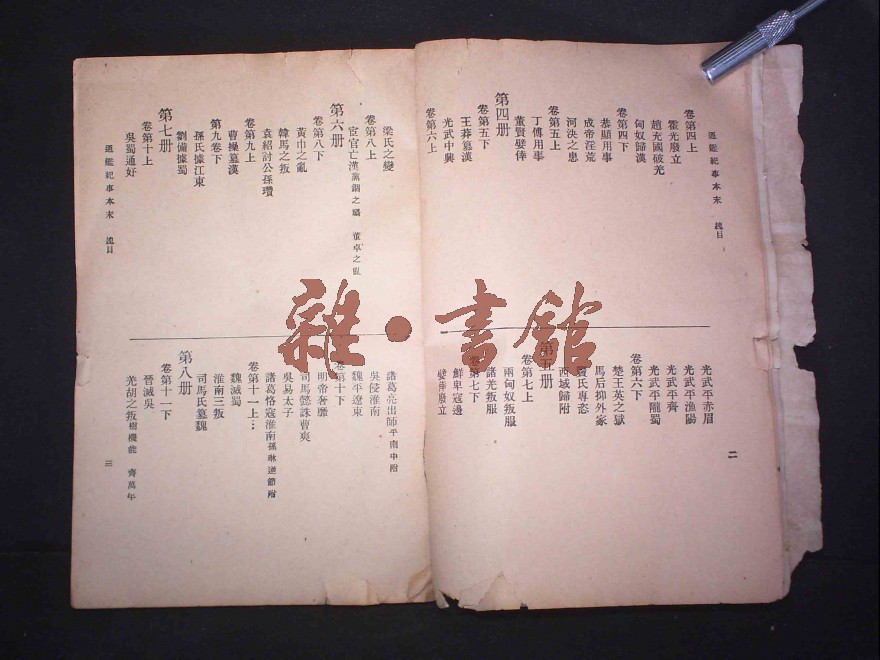 通鑑紀事本末 總目
卷第四上
霍光廢立
趙充國破羌
匈奴歸漢
卷第四下
恭顯用事
成帝淫荒
河決之患
丁傅用事
卷第五上
董賢嬖倖
第四册
卷第五下
王莽篡漢
光武中興
卷第六上
光武平赤眉
光武平漁陽
光武平齊
光武平隴蜀
卷第六下
楚王英之獄
馬后抑外家
竇氏專恣
西域歸附
第五册
卷第七上
兩匈奴叛服
諸羌叛服
卷第七下
鮮卑寇邊
嬖倖廢立
二
梁氏之變
卷第八上
宦官亡漢黨錮之禍 董卓之亂
第六册
卷第八下
黃巾之亂
韓馬之叛
袁紹討公孫瓚
卷第九上
曹操篡漢
第九卷下
孫氏據江東
劉備據蜀
第七册
卷第十上
吳蜀通好
通鑑紀事本末 總目
諸葛亮出師平南中附
吳侵淮南
魏平遼東
卷第十下
明帝奢靡
司馬懿誅曹爽
吳易太子
諸葛恪寇淮南孫綝逆節附
卷第十一上
魏滅蜀
淮南三叛
司馬氏篡魏
第八册
卷第十一下
晉滅吳
羌胡之叛樹機能 齊萬年
三
雜·書館